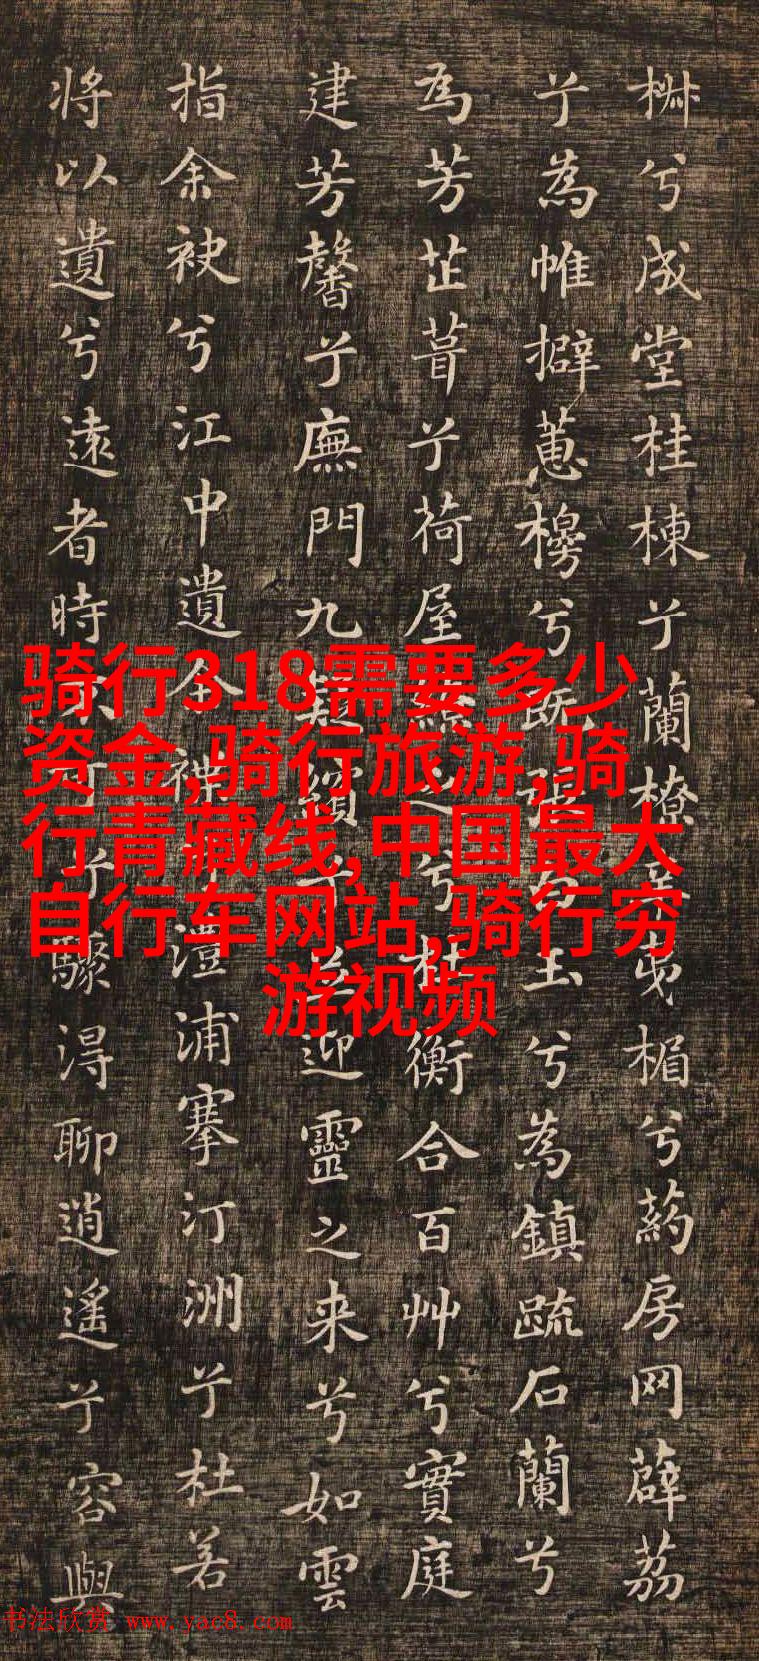 椒兮成堂桂棟兮蘭橑辛夷楣兮葯房网薜荔
兮為帷擗蕙櫋兮既張白玉兮為鎮疏石蘭兮
為芳芷葺兮荷屋繚之兮杜衡合百艸兮實庭
建芳馨兮廡門九疑繽兮並迎靈之来兮如雲
指余袂兮江中遺余褋兮澧浦搴汀洲兮杜若
将以遺兮遠者時不可兮驟淂聊逍遙兮容與
骑行318需要多少
资金,骑行旅游,骑
行青藏线,中国最大
自行车网站,骑行穷
游视频
书法欣赏 www.yac8.com